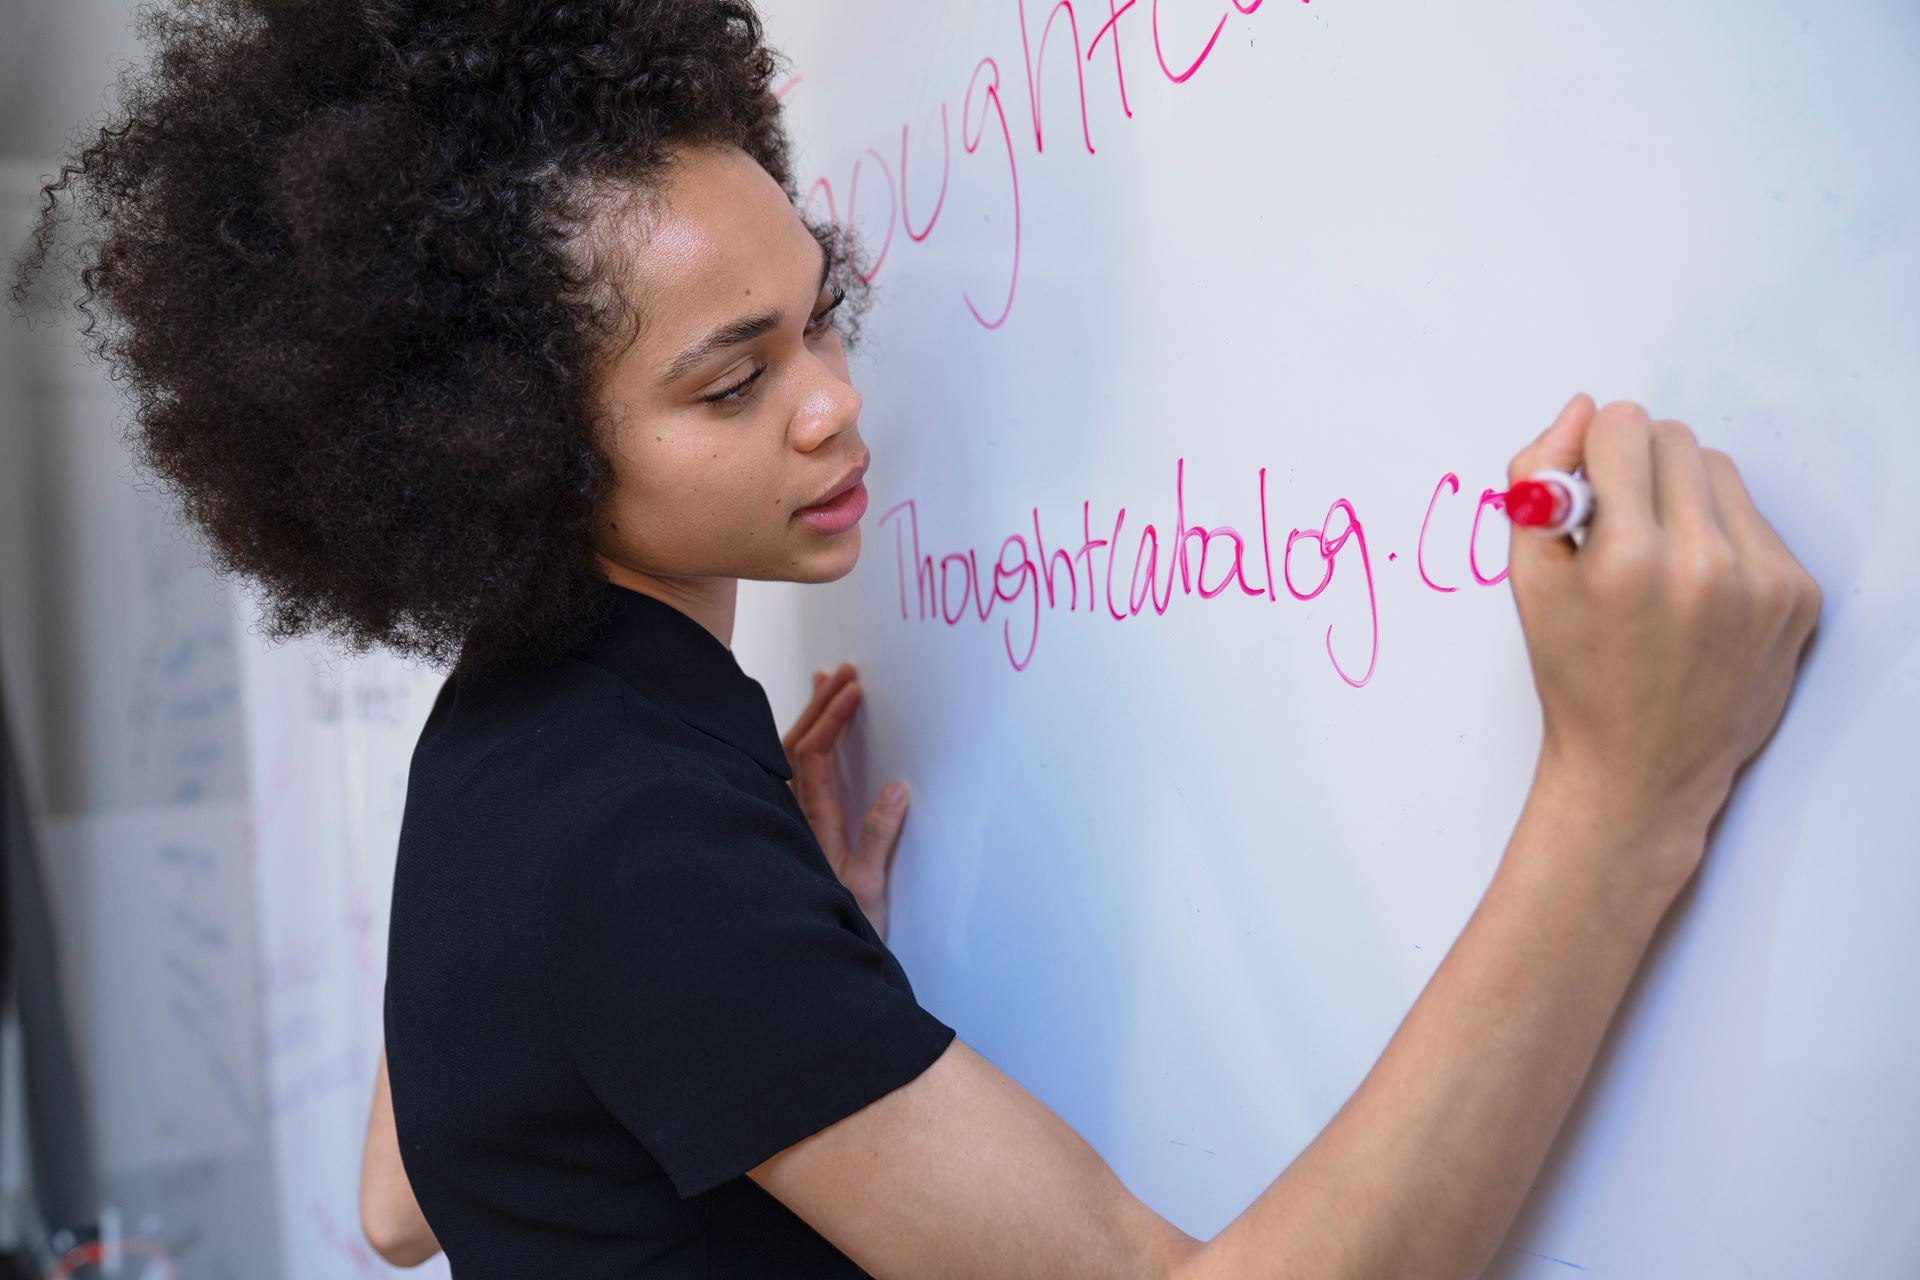 Thoughtca
Thoughtcatalog.co